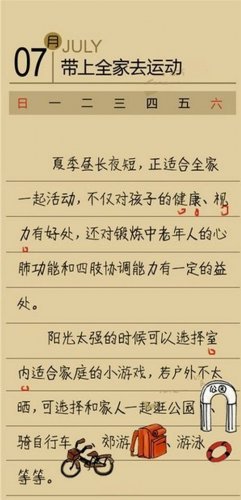 07月 JULY
带上全家去运动
日 一 二 三 四 五 六
夏季昼长夜短，正适合全家
一起活动，不仅对孩子的健康、视
力有好处，还对锻炼中老年人的心
肺功能和四肢协调能力有一定的益
处。
阳光太强的时候可以选择室
内适合家庭的小游戏，若户外不太
晒，可选择和家人一起逛公园、
骑自行车、郊游、游泳
等等。
公园